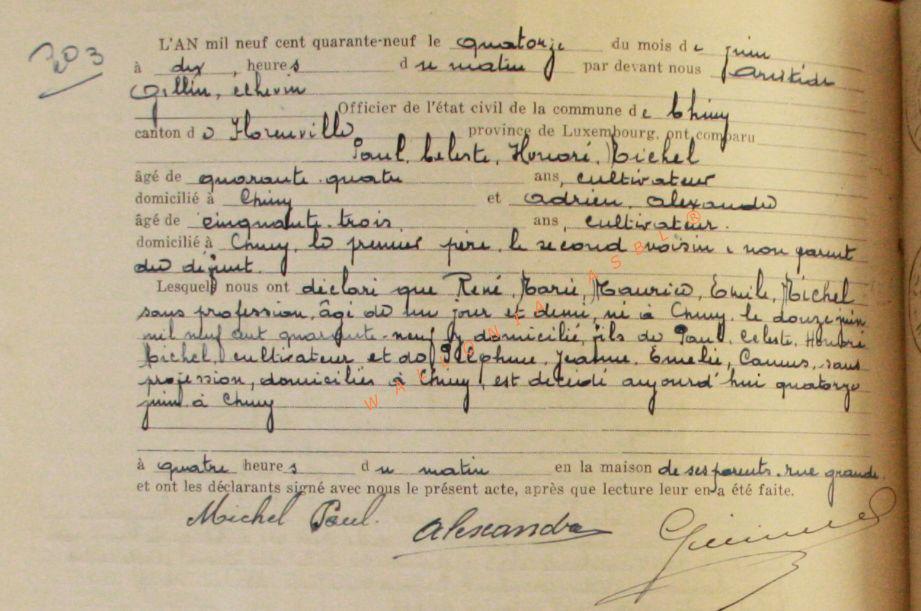 203
L'AN mil neuf cent quarante-neuf le quatorze du mois de juin
à dix, heures du matin par devant nous Aristide
Gillin, échevin
Officier de l'état civil de la commune de Chiny
canton de Florenville province de Luxembourg, ont comparu
Paul, Celeste, Honoré, Michel
âgé de quarante-quatre ans, cultivateur
domicilié à Chiny et Adrien Alexandre
âgé de cinquante-trois ans, cultivateur.
domicilié à Chiny, le premier père, le second voisin, non parent
du défunt.
Lesquels nous ont déclaré que René, Marie, Maurice, Emile, Michel
sans profession, âgé de un jour et demi, né à Chiny, le douze juin
mil neuf cent quarante-neuf y domicilié, fils de Paul, Celeste, Honoré
Michel, cultivateur et de Jeanne, Emelie, Camus, sans
profession, domiciliés à Chiny, est décédé aujourd'hui quatorze
juin à Chiny
à quatre heures du matin en la maison de ses parents, rue grande.
et ont les déclarants signé avec nous le présent acte, après que lecture leur en a été faite.
Michel Paul.
Alexandre
WALLONIA ASBL ®